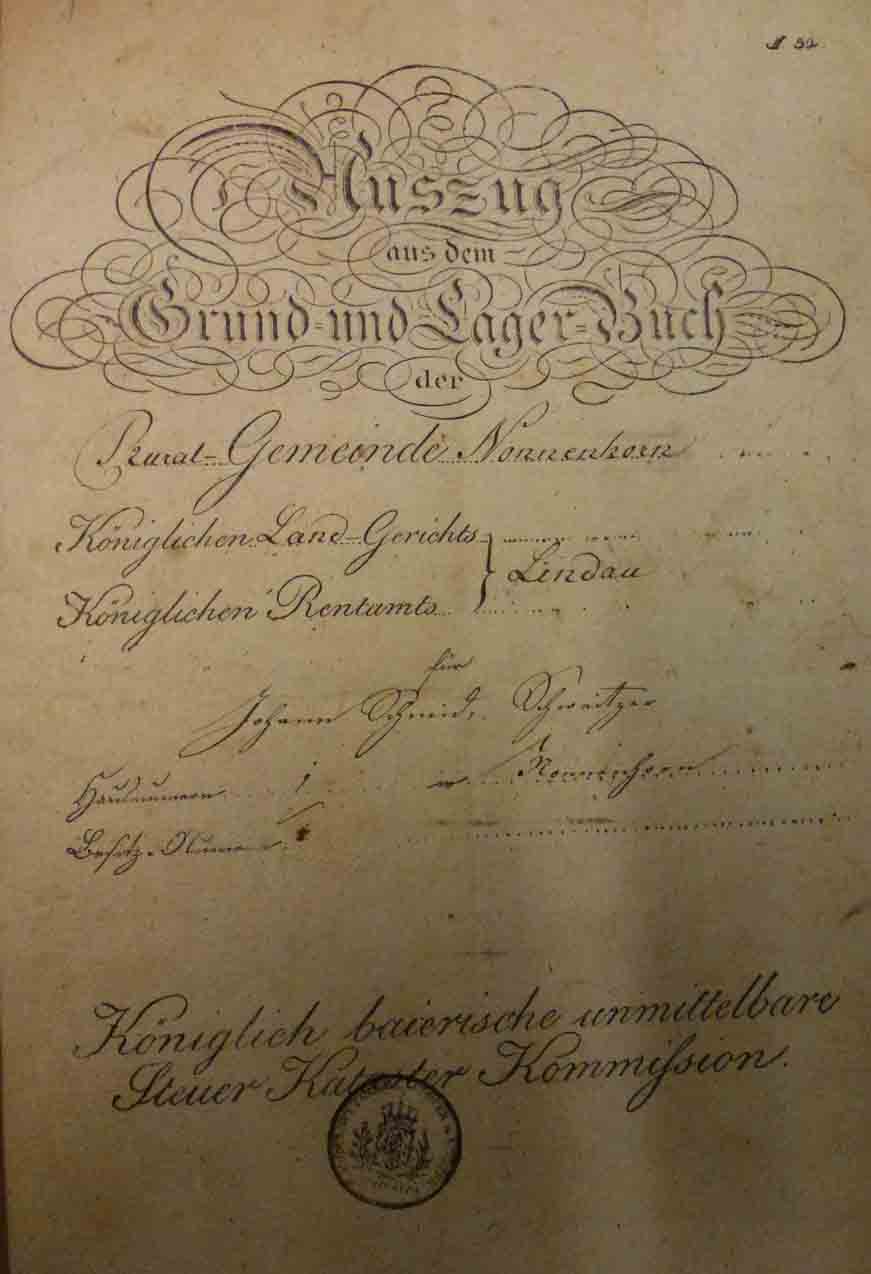 Auszug
aus dem
Grund- und Lager-Buch
der
Rural-Gemeinde Nonnenhorn
Königlichen Land-Gerichts
Lindau
Königlichen Rentamts
für
Johann Schmid, Schweitzer
Hausnumern 1 in Nonnenhorn
Besitz-Numern 1
Königlich baierische unmittelbare
Steuer Kataster Kommißion.